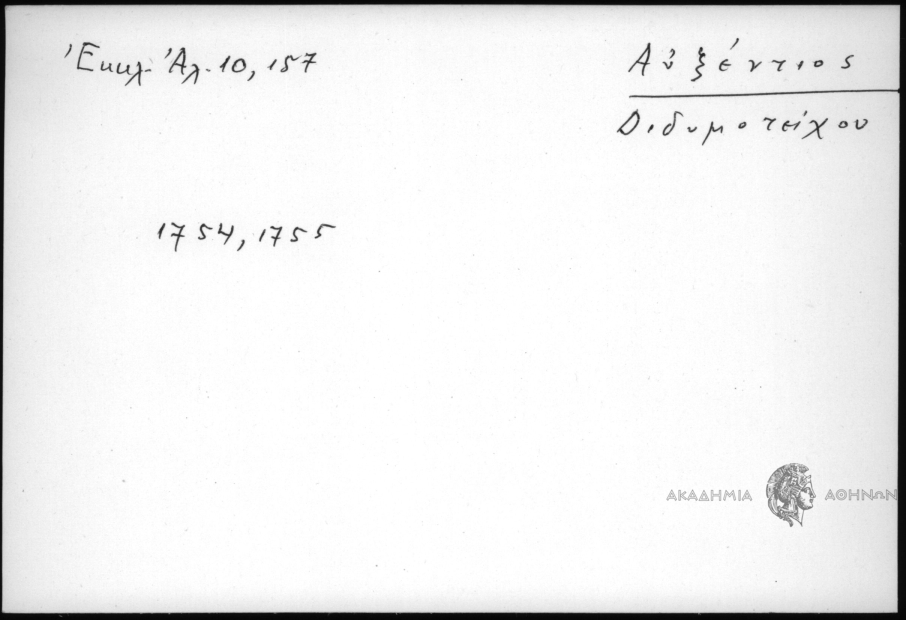 Ἐκκλ. Ἀλ. 10, 157
Αὐξέντιος
Διδυμοτείχου
1754, 1755
ΑΚΑΔΗΜΙΑ ΑΘΗΝΩΝ